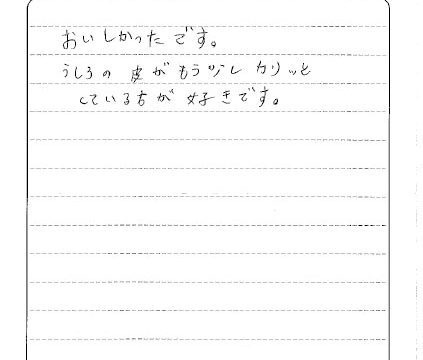 おいしかったです。
うしろの皮がもう少しカリッと
している方が好きです。